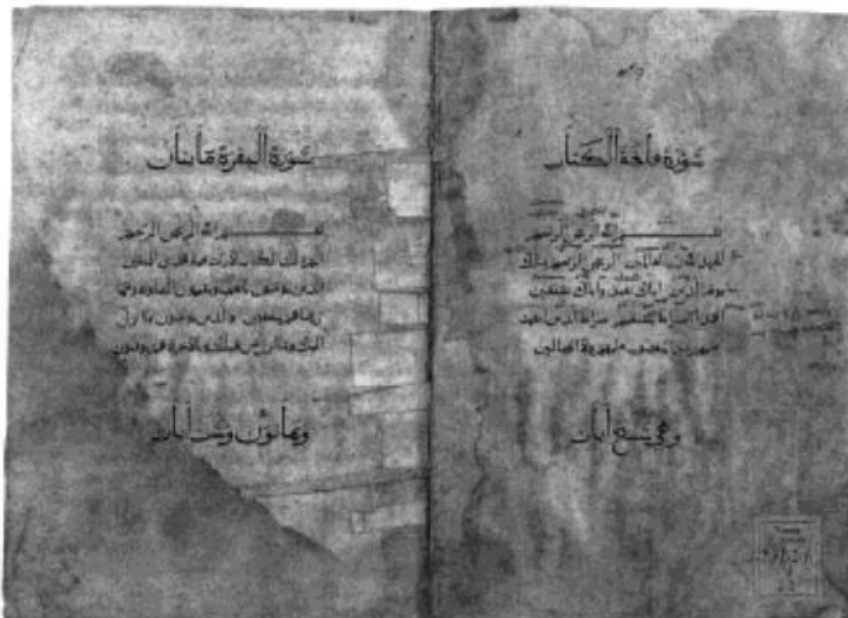 سورة فاتحة الكتاب
بسم الله الرحمن الرحيم
الحمد لله رب العالمين الرحمن الرحيم ملك
يوم الدين اياك نعبد واياك نستعين
اهدنا الصراط المستقيم صراط الذين انعمت
عليهم غير المغضوب عليهم ولا الضالين
وهي سبع آيات
سورة البقرة مأيتان
بسم الله الرحمن الرحيم
الم ذلك الكتاب لا ريب فيه هدى للمتقين
الذين يؤمنون بالغيب ويقيمون الصلوة ومما
رزقناهم ينفقون والذين يؤمنون بما انزل
اليك وما انزل من قبلك وبالاخرة هم يوقنون
وثمانون وست آيات